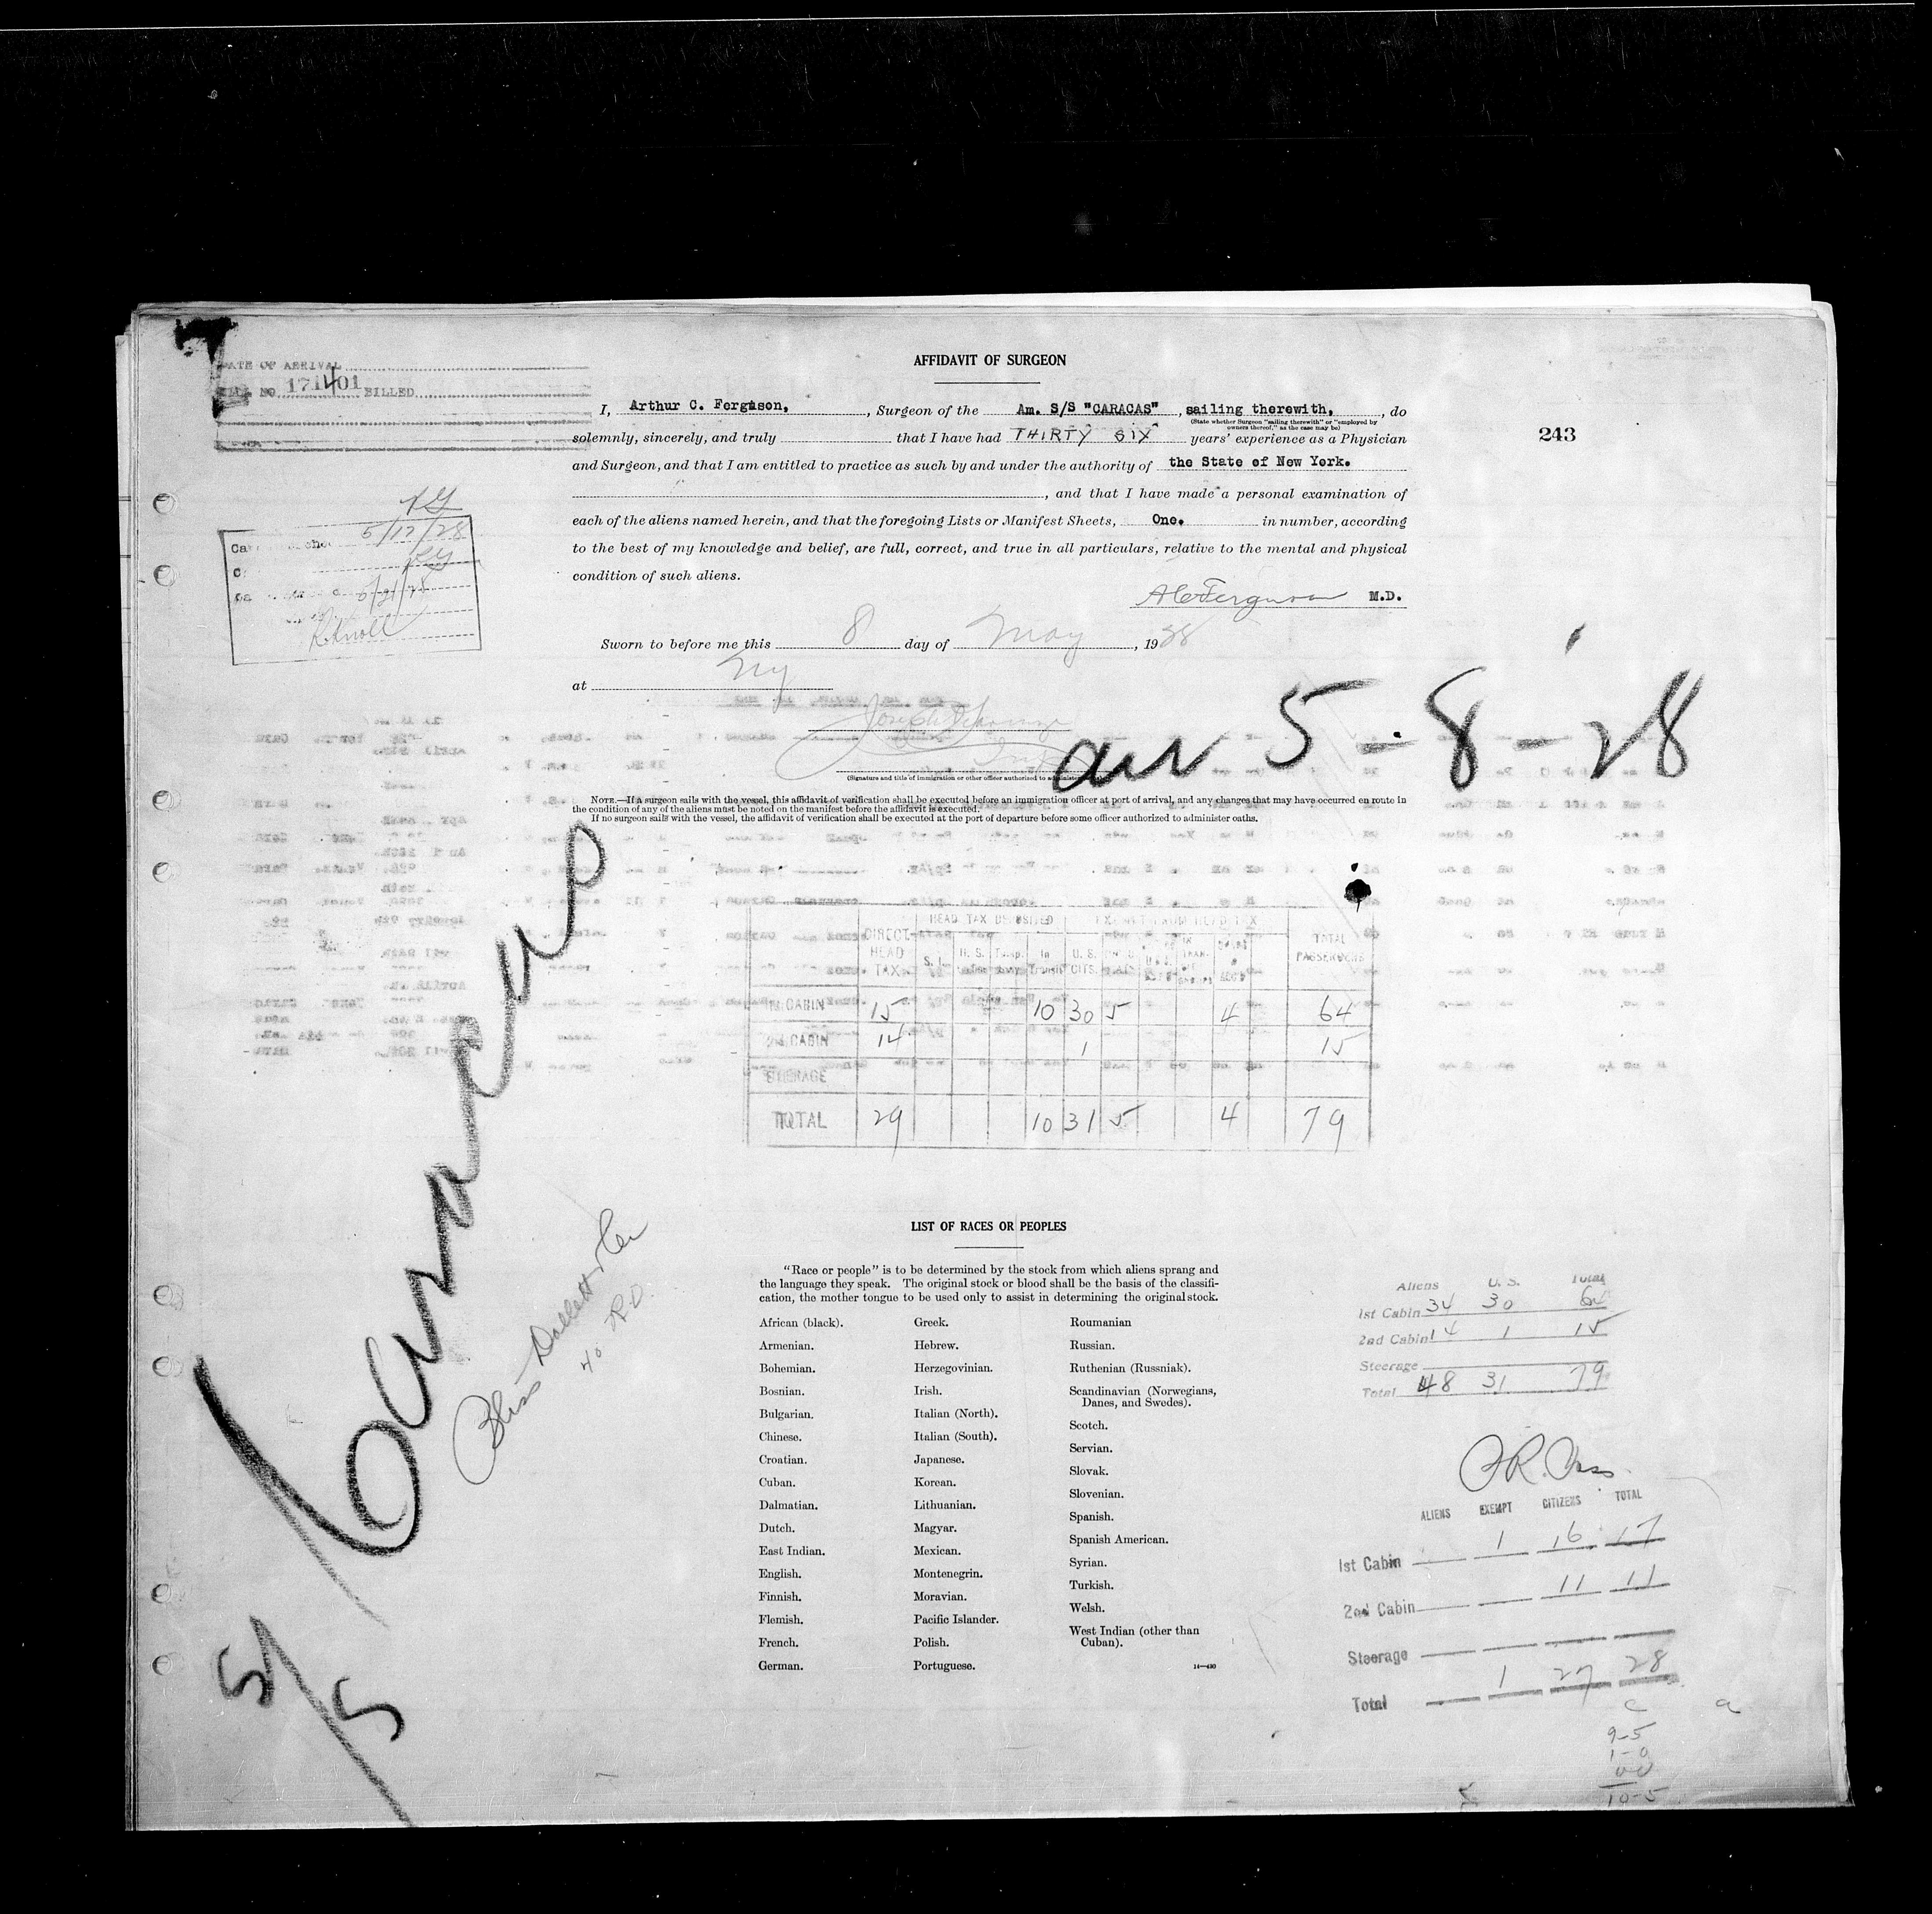 DATE OF ARRIVAL
NO 171401 BILLED
AFFIDAVIT OF SURGEON
I, Arthur C. Ferguson, , Surgeon of the Am. S/S "CARACAS" , sailing therewith, , do
(State whether Surgeon "sailing therewith" or "employed by
owners thereof," as the case may be)
solemnly, sincerely, and truly that I have had THIRTY SIX years' experience as a Physician
243
and Surgeon, and that I am entitled to practice as such by and under the authority of the State of New York.
, and that I have made a personal examination of
each of the aliens named herein, and that the foregoing Lists or Manifest Sheets, One. in number, according
to the best of my knowledge and belief, are full, correct, and true in all particulars, relative to the mental and physical
condition of such aliens.
5/17/28
5/21/28
R. Knoll
A C Ferguson M.D.
Sworn to before me this 8 day of May , 1928
at NY
arr 5-8-28
(Signature and title of immigration or other officer authorized to
NOTE.—If a surgeon sails with the vessel, this affidavit of verification shall be executed before an immigration officer at port of arrival, and any changes that may have occurred en route in
the condition of any of the aliens must be noted on the manifest before the affidavit is executed.
If no surgeon sails with the vessel, the affidavit of verification shall be executed at the port of departure before some officer authorized to administer oaths.
HEAD TAX DEPOSITED EXEMPT FROM HEAD TAX
DIRECT HEAD TAX S. I. In Transit U. S. CITS. TOTAL PASSENGERS
1st CABIN 15 10 30 5 4 64
2nd CABIN 14 1 15
STEERAGE
TOTAL 29 10 31 5 4 79
Caracas
5/5
Bliss Dallett & Co
LIST OF RACES OR PEOPLES
"Race or people" is to be determined by the stock from which aliens sprang and
the language they speak. The original stock or blood shall be the basis of the classifi-
cation, the mother tongue to be used only to assist in determining the original stock.
African (black).
Armenian.
Bohemian.
Bosnian.
Bulgarian.
Chinese.
Croatian.
Cuban.
Dalmatian.
Dutch.
East Indian.
English.
Finnish.
Flemish.
French.
German.
Greek.
Hebrew.
Herzegovinian.
Irish.
Italian (North).
Italian (South).
Japanese.
Korean.
Lithuanian.
Magyar.
Mexican.
Montenegrin.
Moravian.
Pacific Islander.
Polish.
Portuguese.
Roumanian
Russian.
Ruthenian (Russniak).
Scandinavian (Norwegians,
Danes, and Swedes).
Scotch.
Servian.
Slovak.
Slovenian.
Spanish.
Spanish American.
Syrian.
Turkish.
Welsh.
West Indian (other than
Cuban).
Aliens U. S. Total
1st Cabin 34 30 64
2nd Cabin 14 1 15
Steerage
Total 48 31 79
ALIENS EXEMPT CITIZENS TOTAL
1st Cabin 1 16 17
2nd Cabin 11 11
Steerage
Total 1 27 28
9-5
1-0
10-5